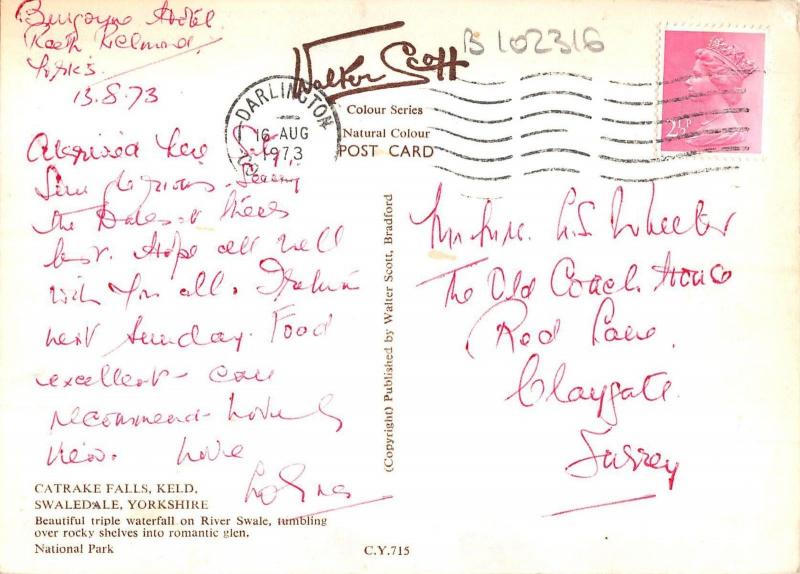 Burgoyne Hotel
Reeth Richmond
Yorks
13.8.73
Walter Scott
B 102316
DARLINGTON
16 AUG
1973
Colour Series
Natural Colour
POST CARD
2½P
Arrived here
Seeing
the Dales at their
best. Hope all well
with you all. Return
next Sunday. Food
excellent - can
recommend - lovely
view. Love
(Copyright) Published by Walter Scott, Bradford
Mr & Mrs. Wheeler
The Old Coach House
Red Lane
Claygate
Surrey
CATRAKE FALLS, KELD,
SWALEDALE, YORKSHIRE
Beautiful triple waterfall on River Swale, tumbling
over rocky shelves into romantic glen.
National Park
C.Y.715